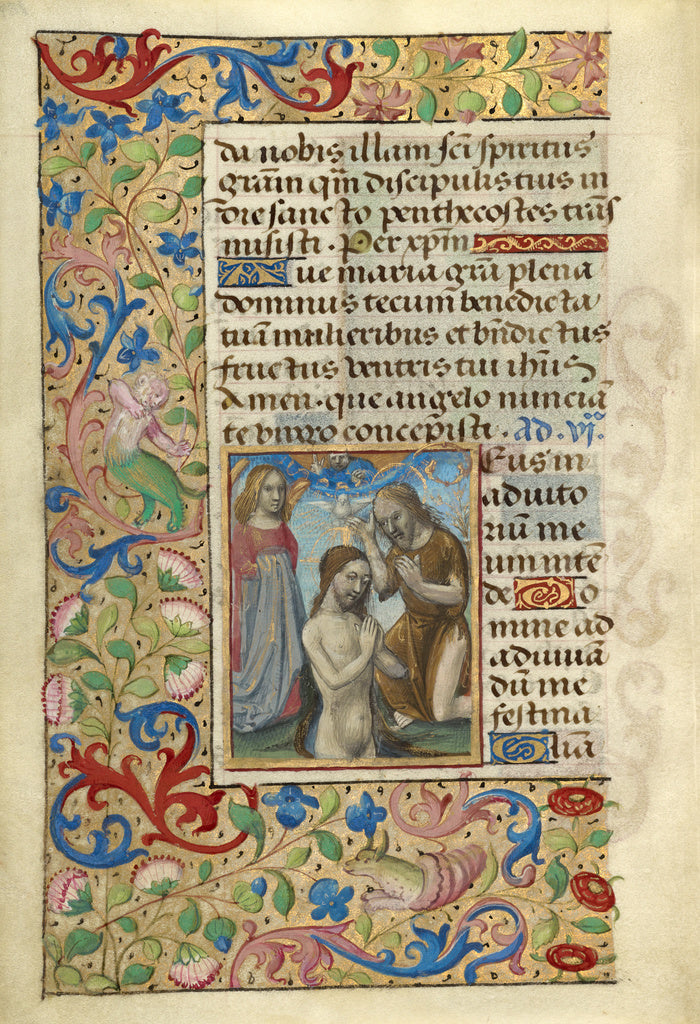 da nobis illam sci spiritus
grām qm̄ discipulis tuis in
die sancto penthecostes trās
misisti · Per xpm̄
Aue maria grā plena
dominus tecum benedicta
tu in mulieribus et bn̄dictus
fructus ventris tui ihus
Amen · que angelo nunciā
te virgo concepisti · ad · vj.
Deus in
adiuto
riū me
um intē
de Do
mine ad
adiuuā
dū me
festina
Glīa